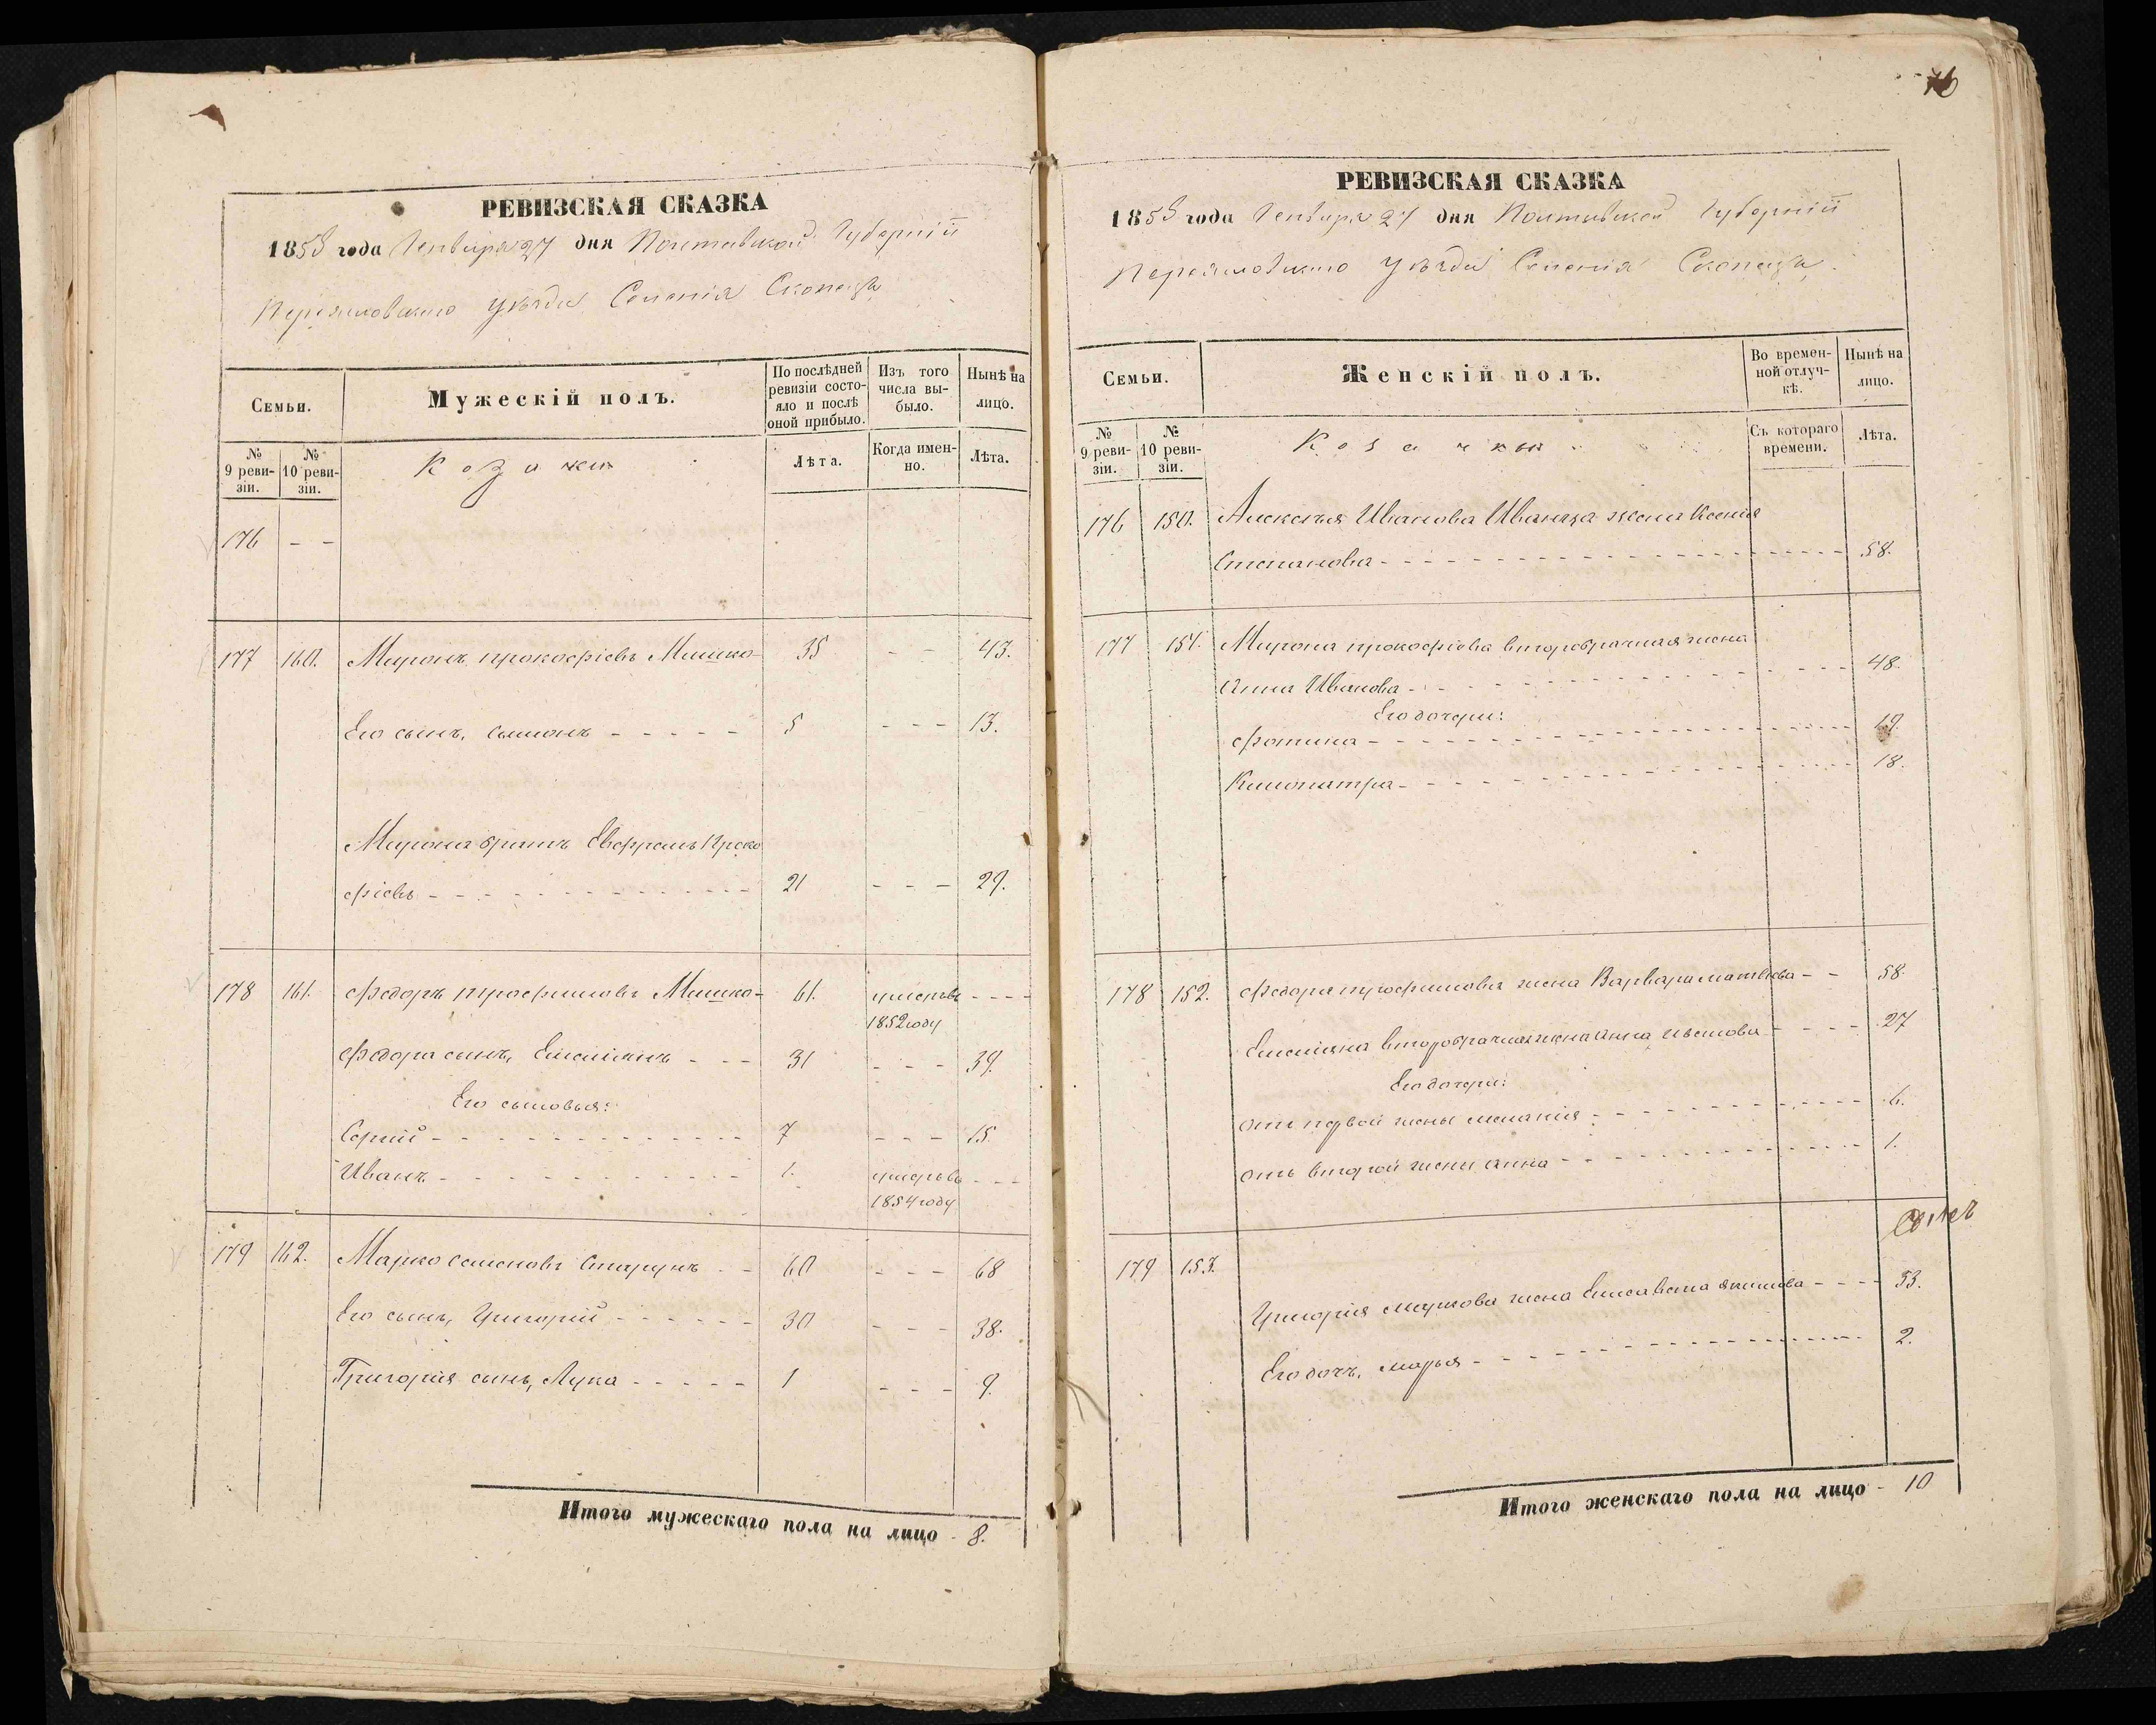 РЕВИЗСКАЯ СКАЗКА
1858 года Генваря 27 дня Полтавской Губерніи
Переясловскаго уѣзда Селенія Скопецъ
Семьи.
Мужескій полъ.
По послѣдней ревизіи состояло и послѣ оной прибыло.
Изъ того числа выбыло.
Нынѣ на лицо.
№ 9 ревизіи.
№ 10 ревизіи.
Козаки
Лѣта.
Когда именно.
Лѣта.
176 - -
177 160. Миронъ прокофіевъ Мишко- 35 - - 43.
Его сынъ, Симонъ - - - - - 5 - - - 13.
Мирона братъ Евфремъ Проко
фіевъ - - - - - - - - - - - - - 21 - - - 29.
178 161. Федоръ трофимовъ Мишко- 61. умеръ въ - - - -
1852 году
Федора сынъ, Емеліянъ - - - 31 - - - 39.
Его сыновья:
Сергій - - - - - - - - - - - - - 7 - - - 15.
Иванъ - - - - - - - - - - - - - 1. умеръ въ - - -
1854 году
179 162. Марко Семеновъ Старунъ - - 60 - - - 68
Его сынъ, Григорій - - - - - - 30 - - - 38.
Григорія сынъ, Лука - - - - - 1 - - - 9.
Итого мужескаго пола на лицо - 8.
76
РЕВИЗСКАЯ СКАЗКА
1858 года Генваря 27 дня Полтавской Губерніи
Переясловскаго уѣзда Селенія Скопецъ.
Семьи.
Женскій полъ.
Во временной отлучкѣ.
Нынѣ на лицо.
№ 9 ревизіи.
№ 10 ревизіи.
Козачки
Съ котораго времени.
Лѣта.
176 150. Алексѣя Иванова Иваница жена Ксенія
Степанова - - - - - - - - - - - - - - - - - 58.
177 151. Мирона прокофіева второбрачная жена
Анна Иванова - - - - - - - - - - - - - - - 48.
Его дочери:
Фотина - - - - - - - - - - - - - - - - - - 19.
Клеопатра - - - - - - - - - - - - - - - - 18.
178 152. Федора трофимова жена Варвара матвѣева - - 58.
Емеліяна второбрачная жена Анна - - - - 27
Его дочери:
отъ первой жены меланія - - - - - - - - - 6.
отъ второй жены анна - - - - - - - - - - 1.
179 153.
Григорія маркова жена Елисавета якимова - - - - 33.
Его дочь, марья - - - - - - - - - - - - - 2.
Итого женскаго пола на лицо - 10